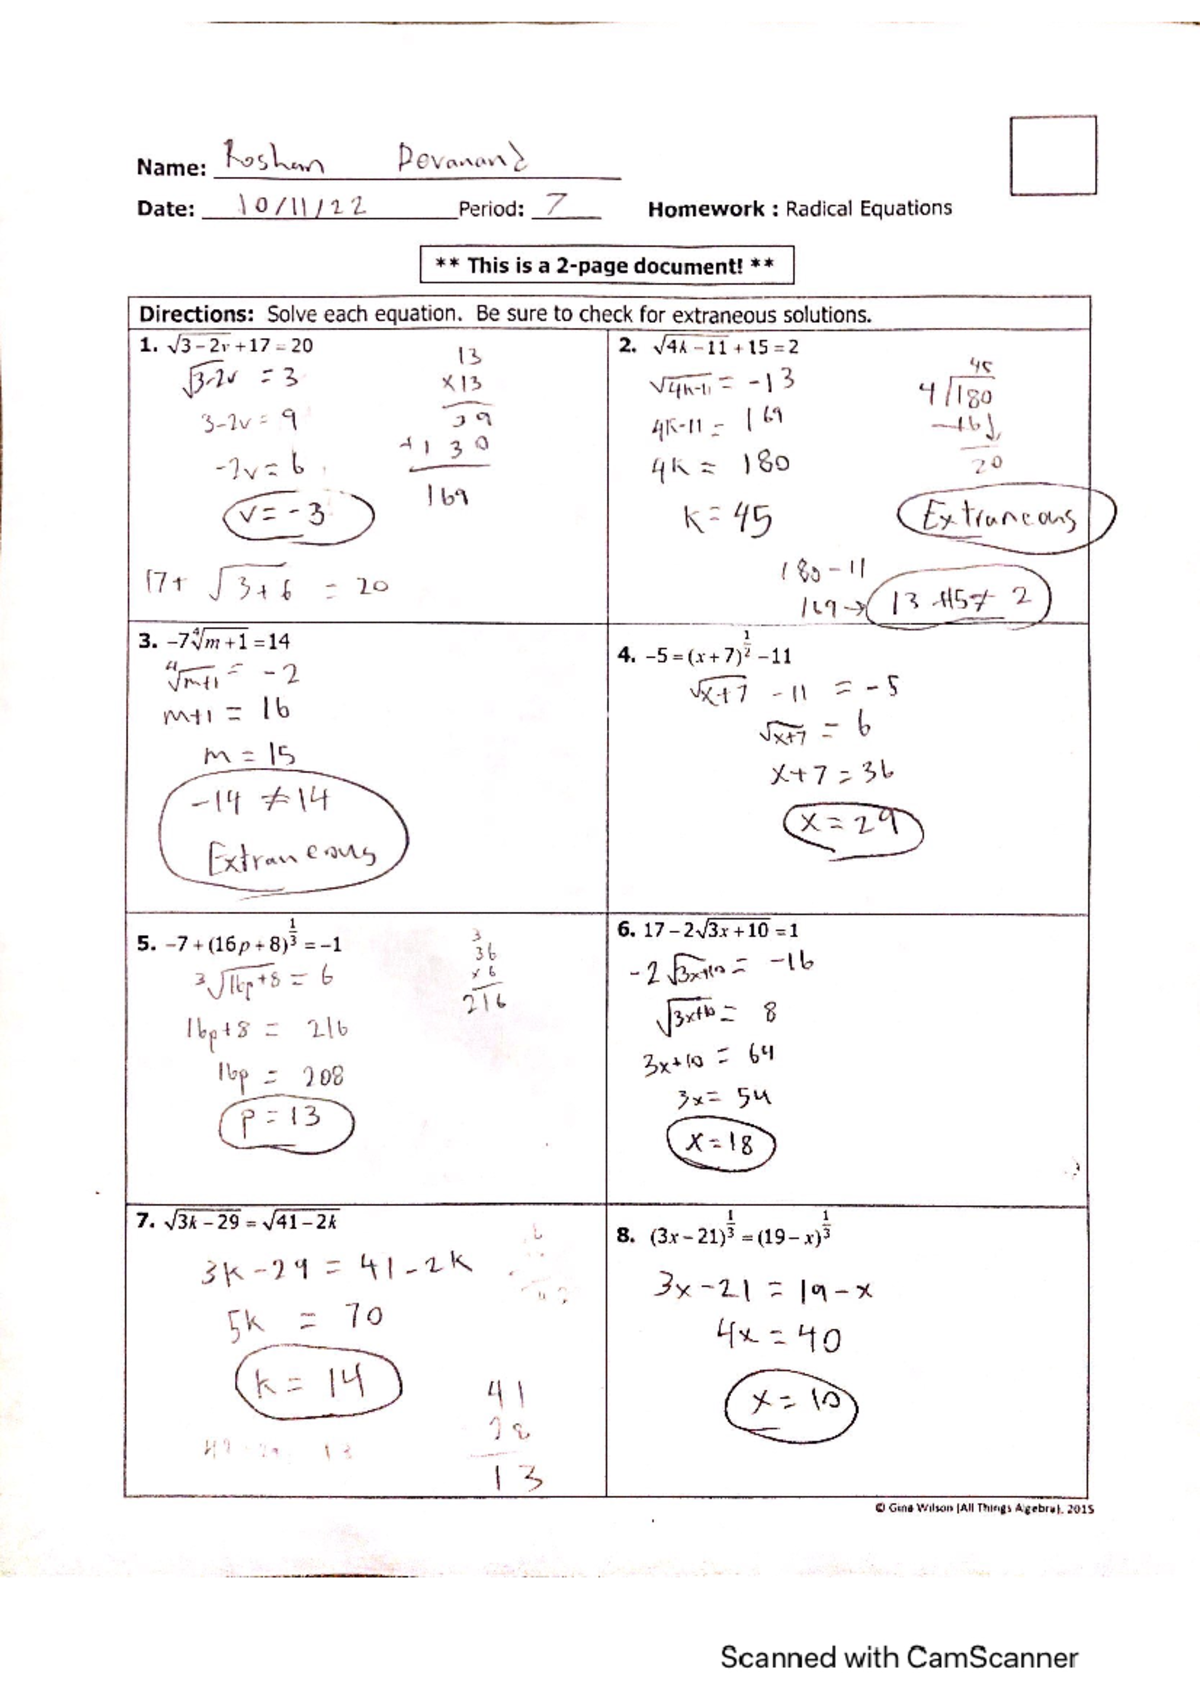 Name: Roshan Devanand
Date: 10/11/22 Period: 7 Homework : Radical Equations
** This is a 2-page document! **
Directions: Solve each equation. Be sure to check for extraneous solutions.
1. √3 – 2v + 17 = 20
√3-2v = 3
3-2v = 9
-2v = 6
v = -3
17 + √3+6 = 20
13
x 13
39
+130
169
2. √4k – 11 + 15 = 2
√4k-11 = -13
4k-11 = 169
4k = 180
k = 45
45
4 √180
-16↓
20
Extraneous
180-11
169 → 13+15≠ 2
3. –7∜m + 1 = 14
∜m+1 = -2
m+1 = 16
m = 15
-14 ≠ 14
Extraneous
4. –5 = (x + 7)^1/2 – 11
√x+7 - 11 = -5
√x+7 = 6
x+7 = 36
x = 29
5. –7 + (16p + 8)^1/3 = –1
∛16p+8 = 6
16p+8 = 216
16p = 208
p = 13
3
36
x 6
216
6. 17 – 2√3x + 10 = 1
-2√3x+10 = -16
√3x+10 = 8
3x+10 = 64
3x = 54
x = 18
7. √3k – 29 = √41 – 2k
3k-29 = 41-2k
5k = 70
k = 14
41
28
13
8. (3x – 21)^1/3 = (19 – x)^1/3
3x-21 = 19-x
4x = 40
x = 10
© Gina Wilson (All Things Algebra), 2015
Scanned with CamScanner